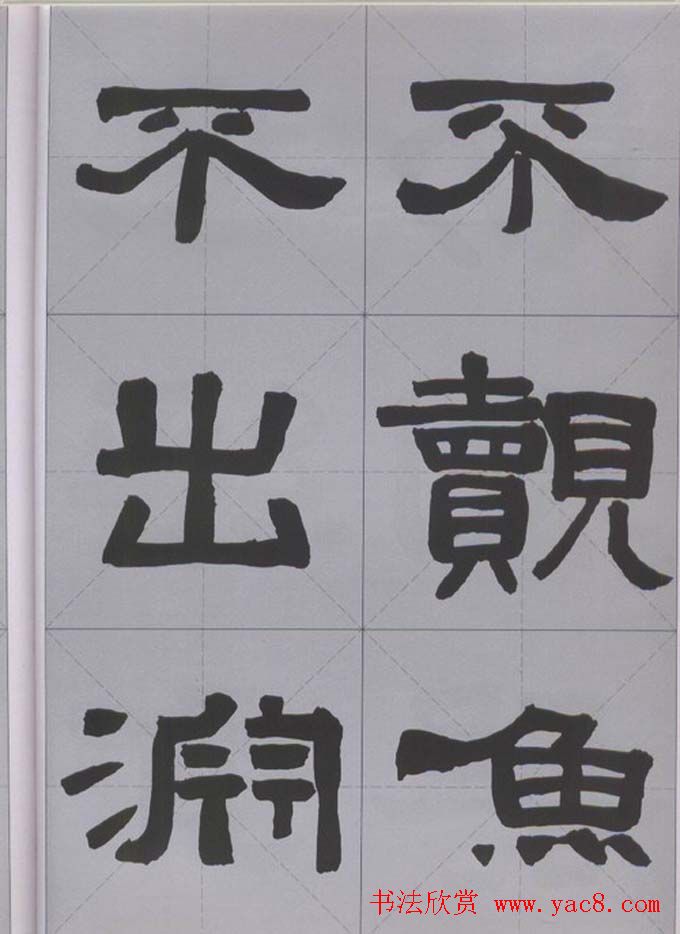 不覿魚
不出淵
书法欣赏 www.yac8.com